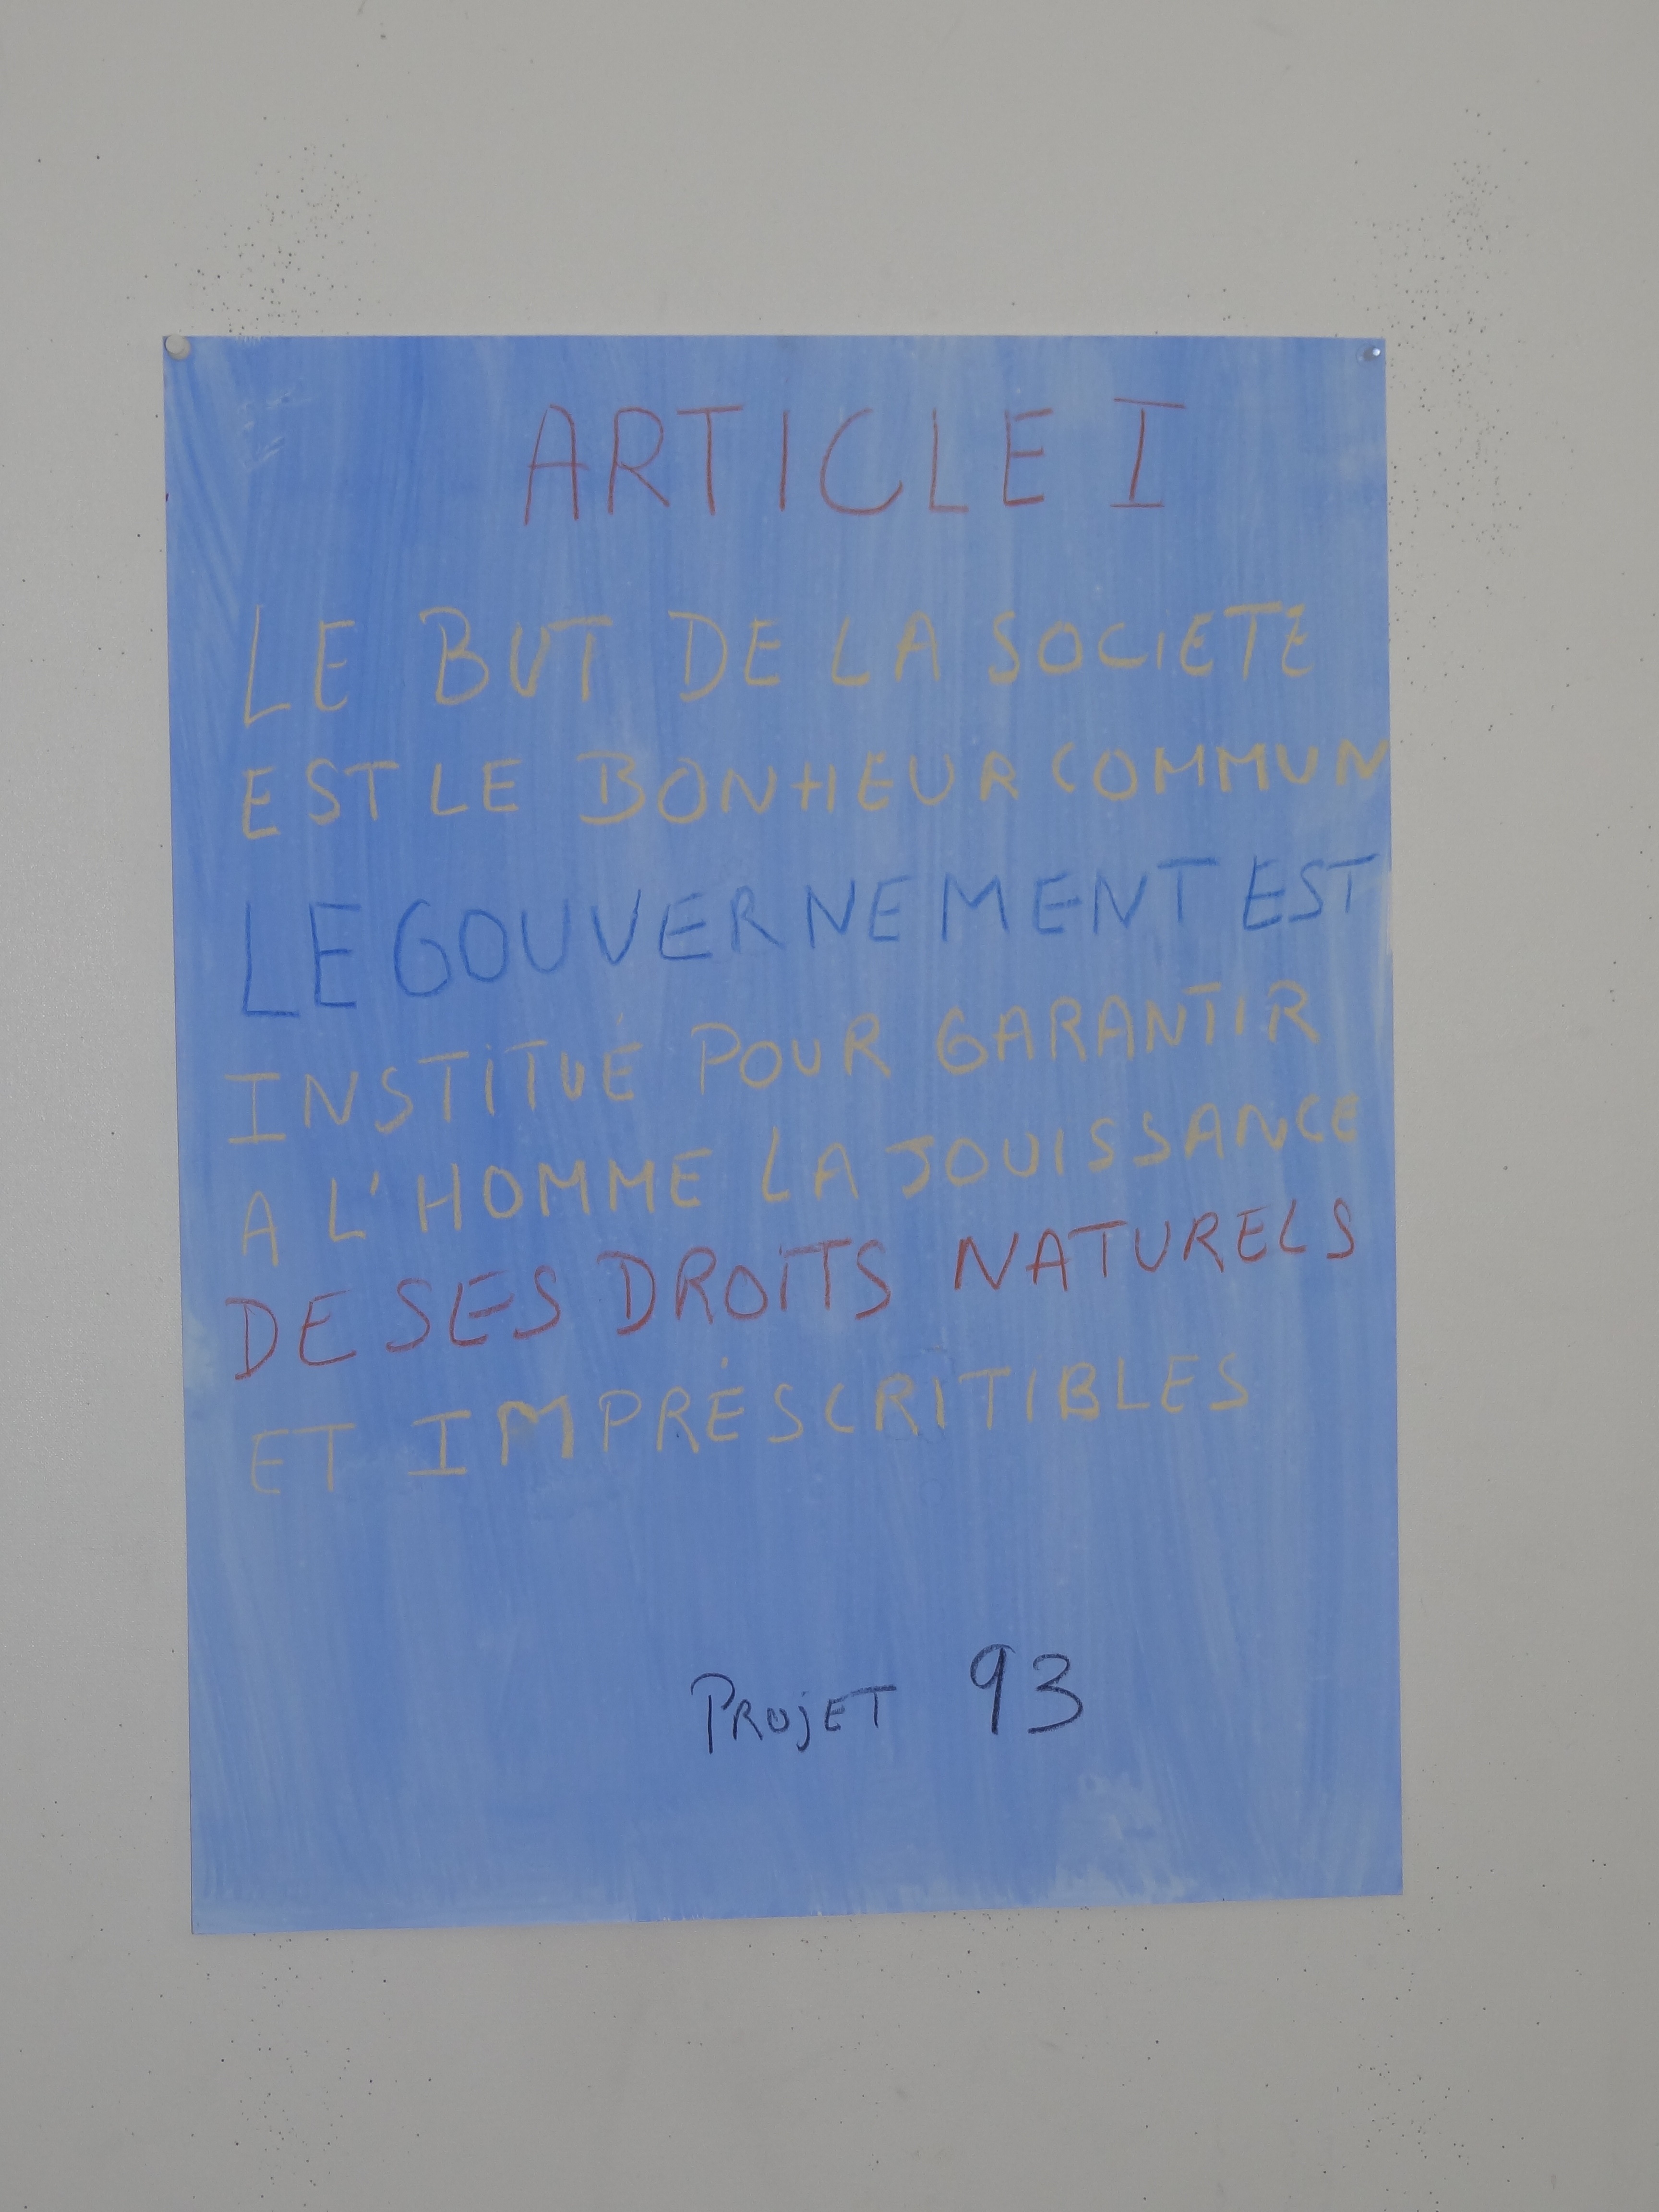 ARTICLE I
LE BUT DE LA SOCIETE
EST LE BONHEUR COMMUN
LE GOUVERNEMENT EST
INSTITUÉ POUR GARANTIR
A L'HOMME LA JOUISSANCE
DE SES DROITS NATURELS
ET IMPRÉSCRITIBLES
PROJET 93